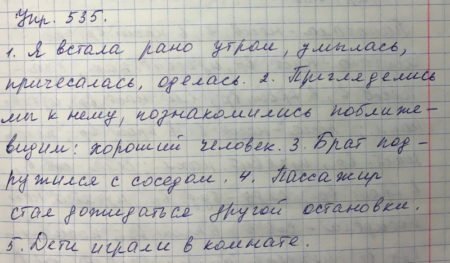 Упр. 535.
1. Я встала рано утром, умылась,
причесалась, оделась. 2. Пригляделись
мы к нему, познакомились поближе –
видим: хороший человек. 3. Брат под-
ружился с соседом. 4. Пассажир
стал дожидаться другой остановки.
5. Дети играли в комнате.